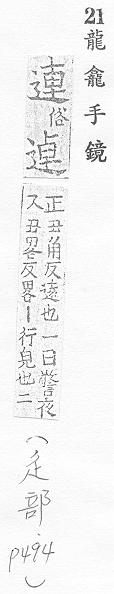 21 龍龕手鏡
俗 逴
正丑角反遠也一曰警夜
又丑畧反畧丨行皃也二
(辵部 p494)